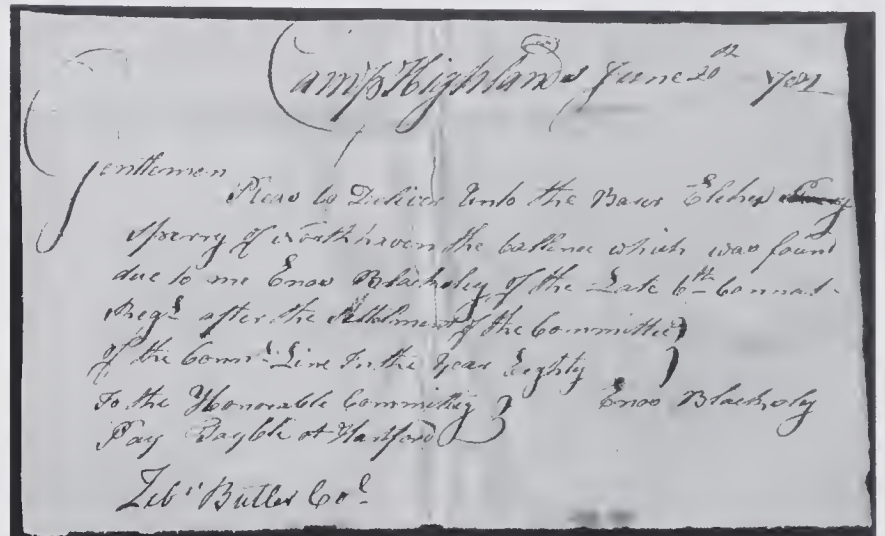 Camp Highlands June 20th 1782
Gentlemen
Pleas to Deliver Unto the Baur
Sperry of Northhaven the ballence which was found
due to me Enos Blacksley of the Late 6th Connat.
Regt after the Settelment of the Committie
of the Connt Line In the Year Eighty
To the Honorable Committy Enos Blacksley
Pay Tayble at Hartford
Zebn Butler Col